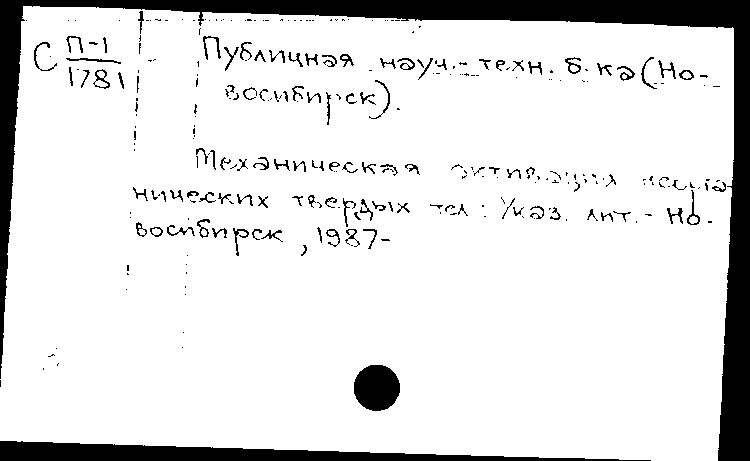 С П-1/1781
Публичная науч.-техн. б-ка (Но-
восибирск).
Механическая активация неорга-
нических твердых тел: Указ. лит. - Но-
восибирск, 1987-